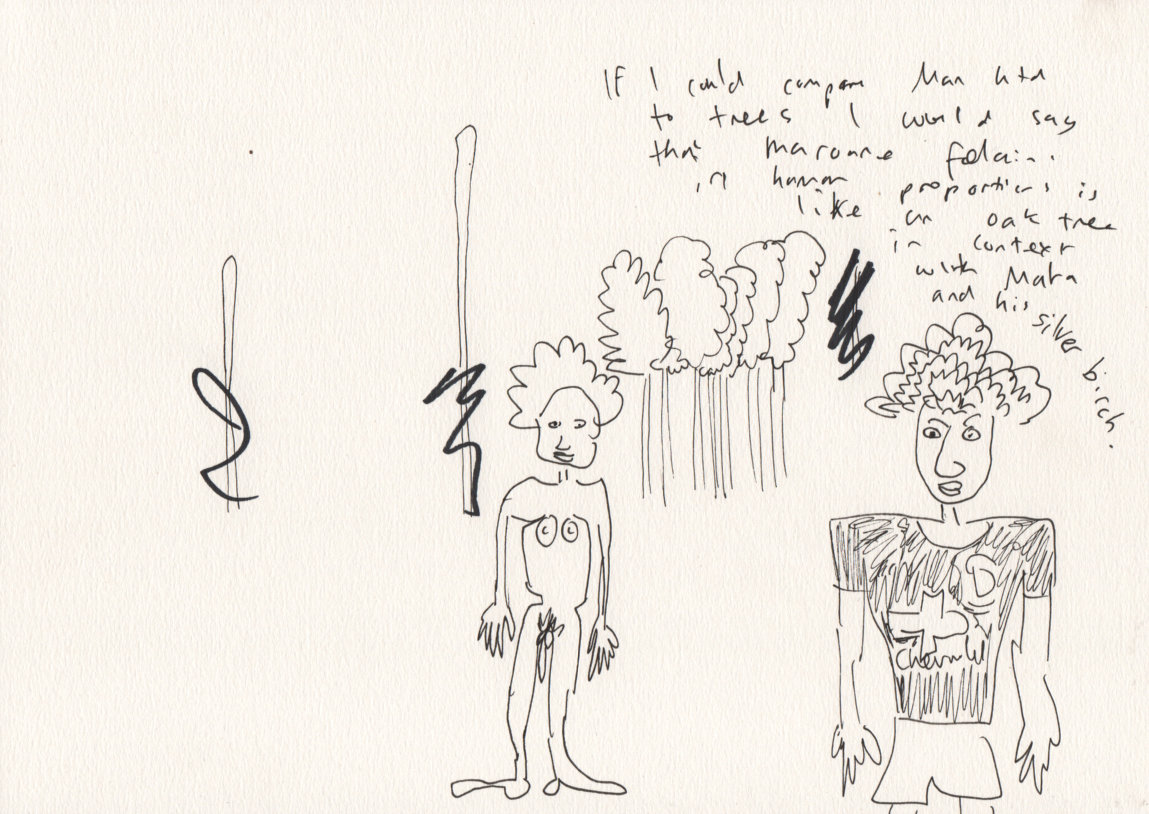 If I could compare Man Utd
to trees I would say
that Marouane Felaini
in human proportions is
like an oak tree
in context
with Mata
and his
silver birch.
D
Chevrolet